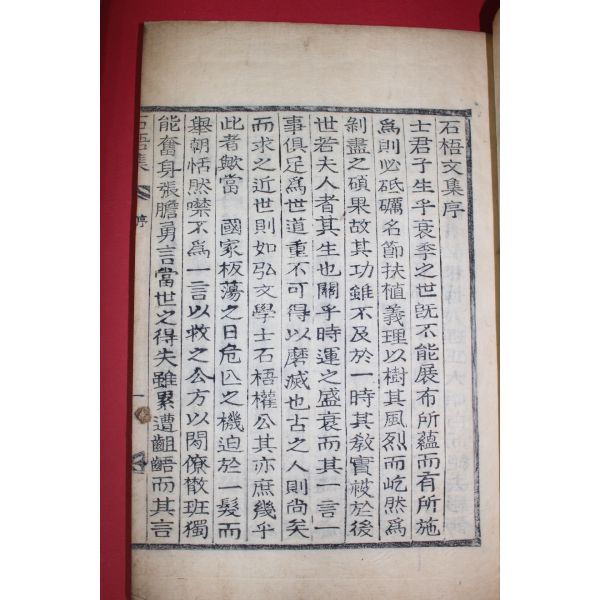 石梧文集序
士君子生乎衰季之世旣不能展布所蘊而有所施
爲則必砥礪名節扶植義理以樹其風烈而屹然爲
剝盡之碩果故其功雖不及於一時其敎實被於後
世若夫人者其生也關乎時運之盛衰而其一言一
事俱足爲世道重不可得以磨滅也古之人則尙矣
而求之近世則如弘文學士石梧權公其亦庶幾乎
此者歟當 國家板蕩之日危亾之機迫於一髮而
擧朝恬然噤不爲一言以救之公方以閒僚散班獨
能奮身張膽勇言當世之得失雖累遭齟齬而其言
石梧集 序 一